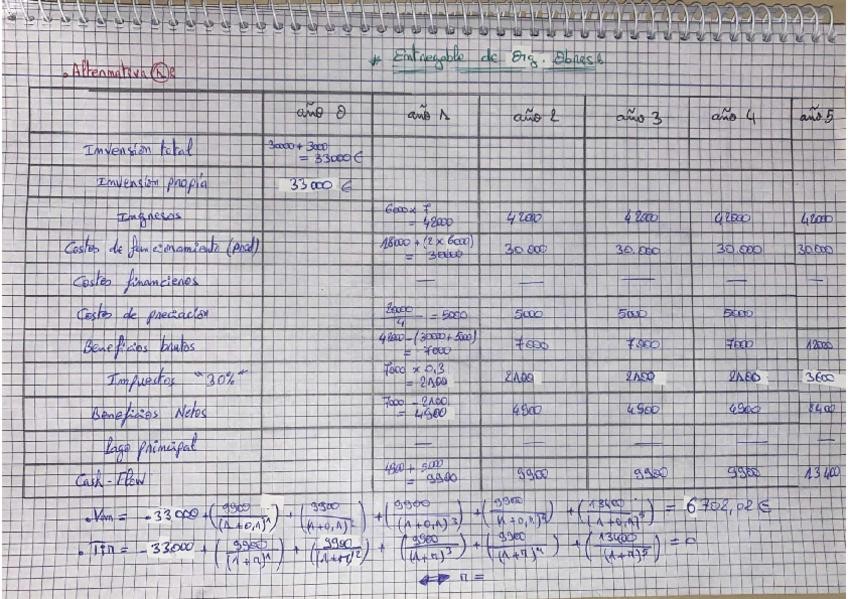 * Entregable de Org. Obras
. Alternativa A
año 0 año 1 año 2 año 3 año 4 año 5
Invension total 30000 + 3000
= 33000€
Invension propia 33000 €
Ingresos 6000 x 7
= 42000 42000 42000 42000 42000
Costos de funcionamiento (prod) 18000 + (2 x 6000)
= 30000 30.000 30.000 30.000 30000
Costos financieros — — — — —
Costos de preciación 20000/4 = 5000 5000 5000 5000
Beneficios brutos 42000 - (30000 + 5000)
= 7000 7000 7000 7000 12000
Impuestos "30%" 7000 x 0,3
= 2100 2100 2100 2100 3600
Beneficios Netos 7000 - 2100
= 4900 4900 4900 4900 8400
Pago principal — — — — —
Cash-Flow 4900 + 5000
= 9900 9900 9900 9900 13400
. Van = -33000 + (9900/(1+0,1)^1) + (9900/(1+0,1)^2) + (9900/(1+0,1)^3) + (9900/(1+0,1)^4) + (13400/(1+0,1)^5) = 6702,02€
. Tir = -33000 + (9900/(1+r)^1) + (9900/(1+r)^2) + (9900/(1+r)^3) + (9900/(1+r)^4) + (13400/(1+r)^5) = 0
↔ r =